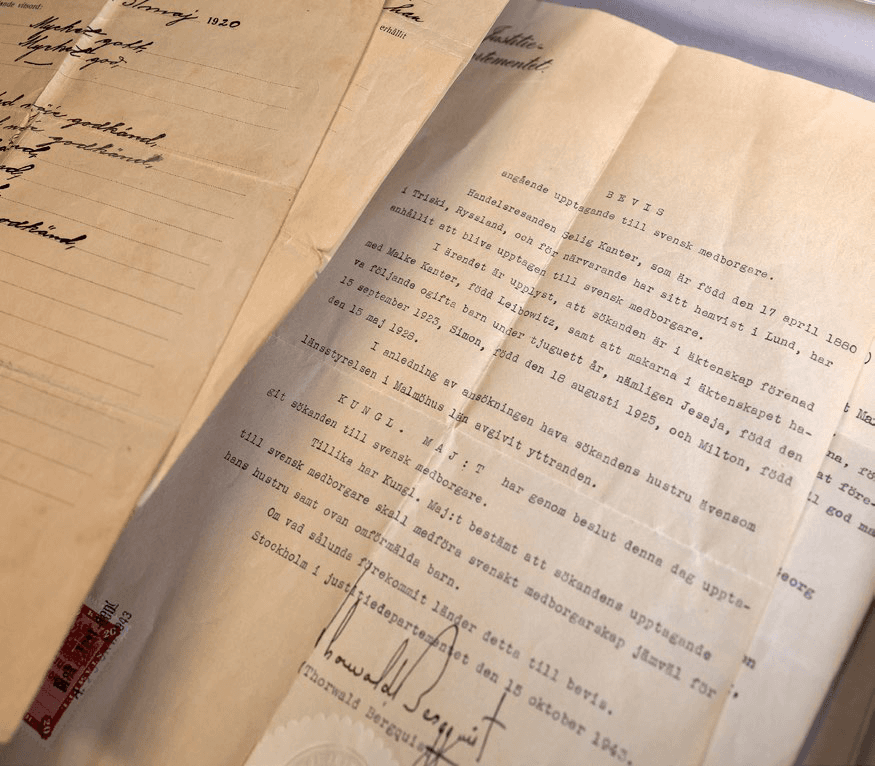 31 maj 1920
Mycket godt,
Mycket god,
godkänd,
godkänd,
godkänd,
erhållit
Justitie-
departementet.
BEVIS
angående upptagande till svensk medborgare.
Handelsresanden Selig Kanter, som är född den 17 april 1880
i Triski, Ryssland, och för närvarande har sitt hemvist i Lund, har
enhållit att bliva upptagen till svensk medborgare.
I ärendet är upplyst, att sökanden är i äktenskap förenad
med Malke Kanter, född Leibowitz, samt att makarna i äktenskapet ha-
va följande ogifta barn under tjuguett år, nämligen Jesaja, född den
15 september 1923, Simon, född den 18 augusti 1925, och Milton, född
den 15 maj 1928.
I anledning av ansökningen hava sökandens hustru ävensom
länsstyrelsen i Malmöhus län avgivit yttranden.
KUNGL. MAJ:T har genom beslut denna dag uppta-
git sökanden till svensk medborgare.
Tillika har Kungl. Maj:t bestämt att sökandens upptagande
till svensk medborgare skall medföra svenskt medborgarskap jämväl för
hans hustru samt ovan omförmälda barn.
Om vad sålunda förekommit länder detta till bevis.
Stockholm i justitiedepartementet den 15 oktober 1943.
Thorwald Bergquist
(Thorwald Bergquist
20